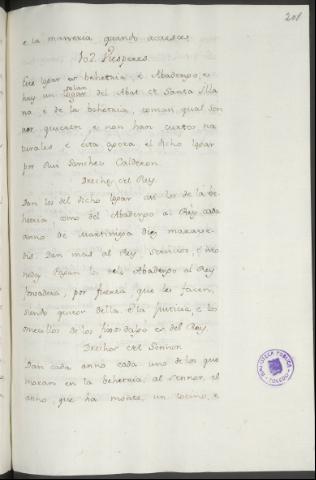 201
e la manneria quando acaesce
102. Riespereo
Este logar es behetria, e Abadengo, e
hay un solar del Abat de Santa Illa
na, e de la behetria, toman qual sen
nor quieren, e non han ciertos na
turales e esta agora el dicho logar
por Rui Sanchez Calderon
Drechos del Rey.
Dan los del dicho logar asi los de la be
hetria, como del Abadengo al Rey cada
anno de Martiniega diez maravè
dis. Dan mas al Rey servicios, e mo
nedas Pagan los del Abadengo al Rey
fonsadera, por fuerza que les facen,
siendo quitos della. E la justicia, e los
omecillos de los fijos dalgo es del Rey.
Drechos del Sennor
Dan cada anno cada uno de los que
moran en la behetria, al sennor, el
anno, que ha montes, un tocino, e
BIBLIOTECA PUBLICA
TOLEDO